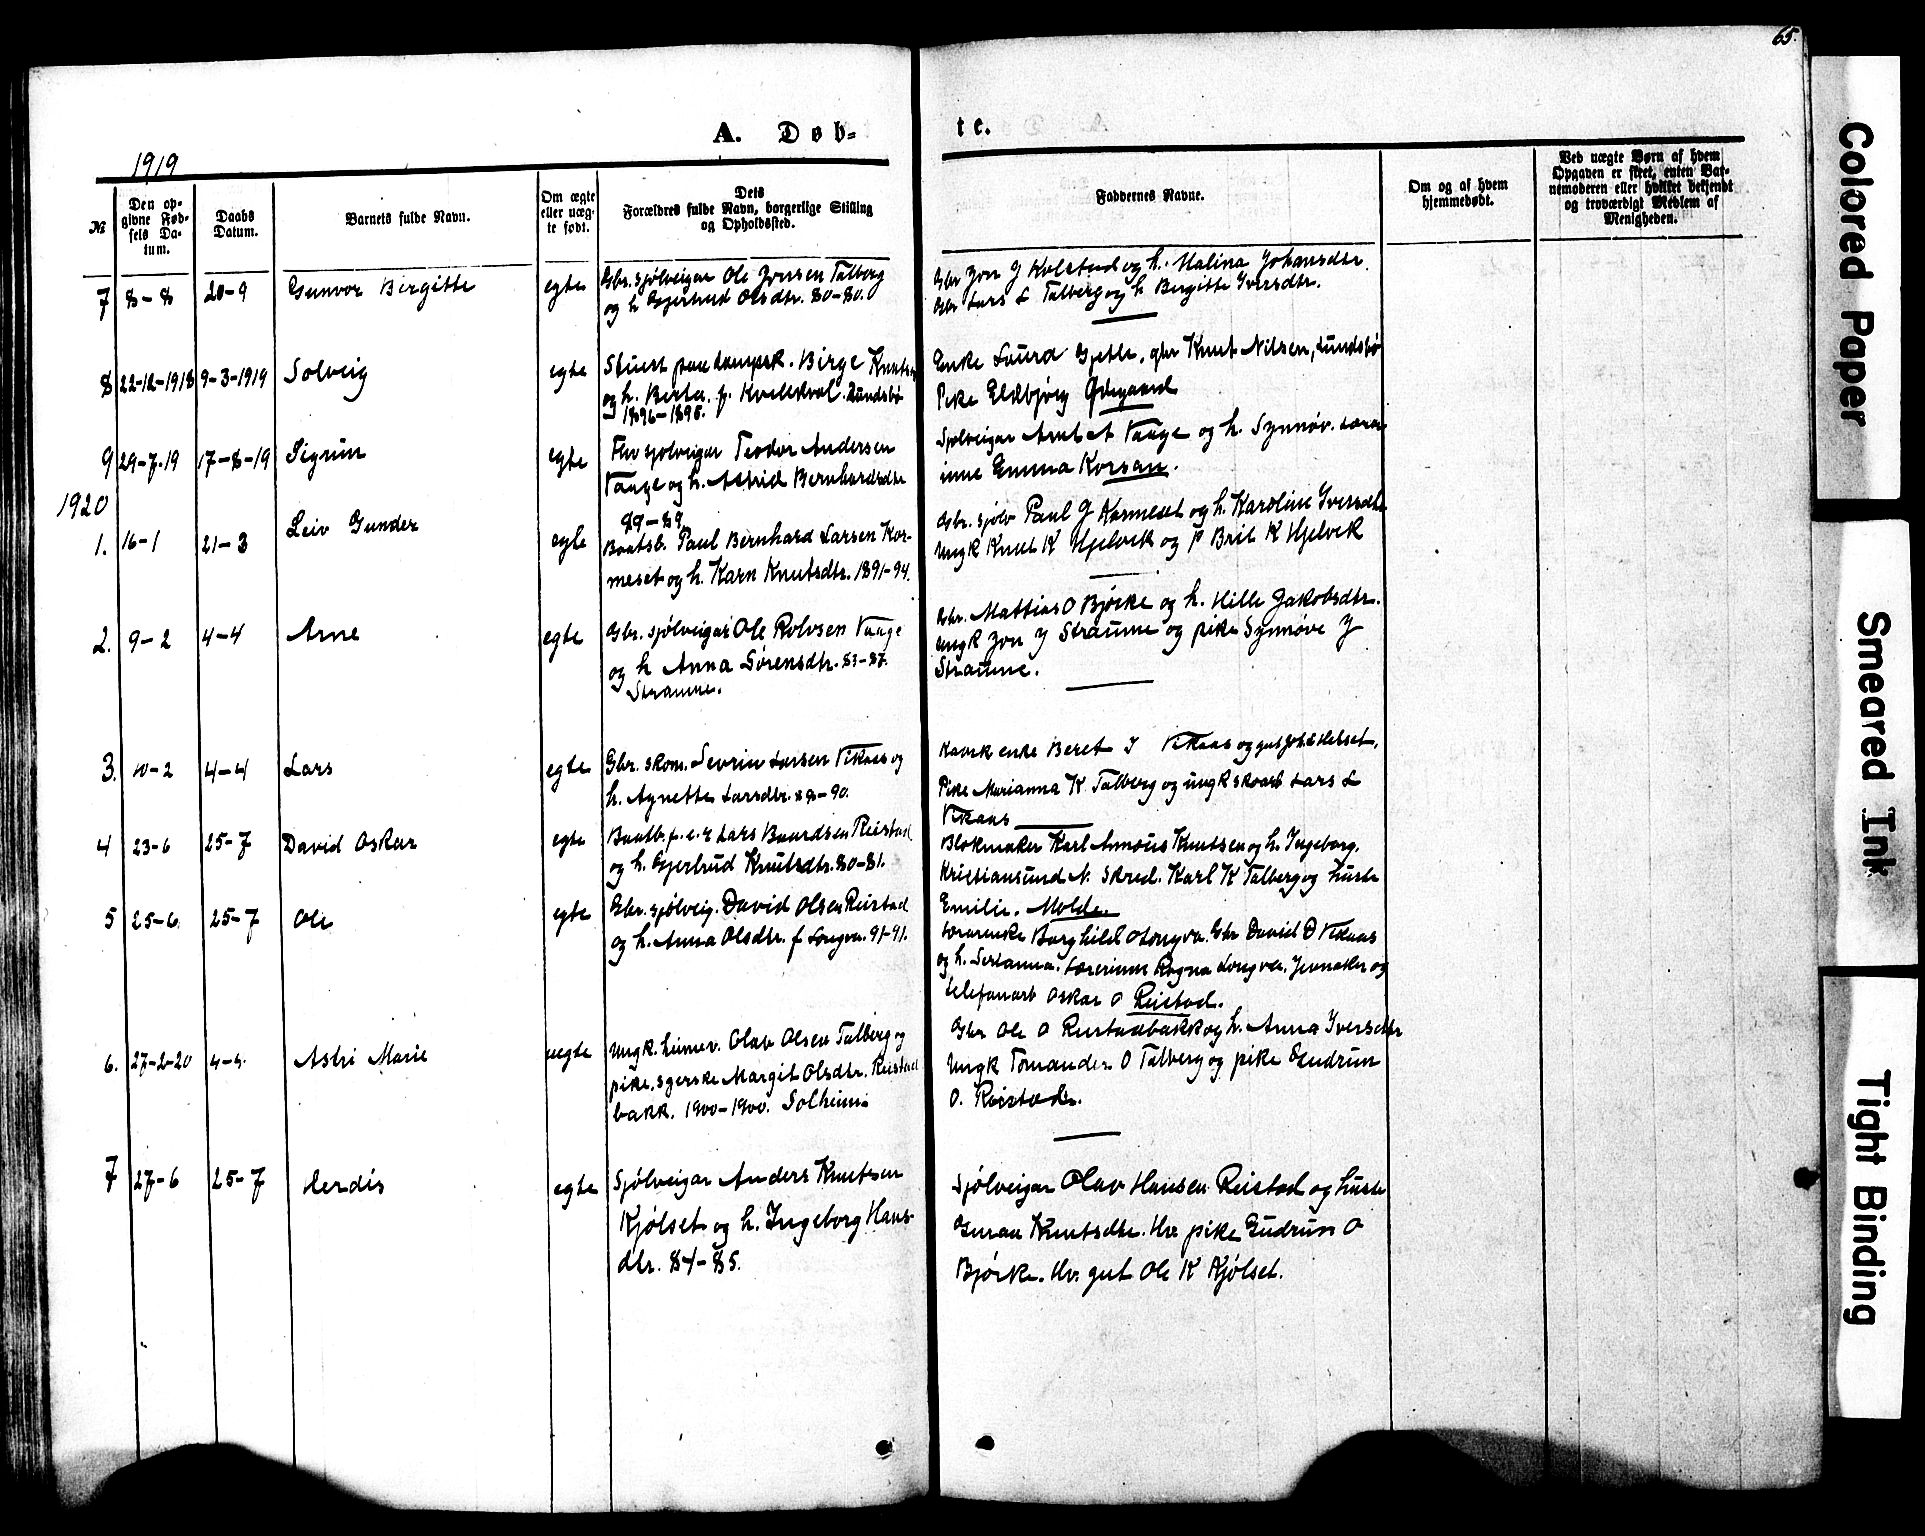 65.
A. Døb-
te.
1919
№
Den op-
givne Fød-
sels Da-
tum.
Daabs
Datum.
Barnets fulde Navn.
Om ægte
eller uæg-
te født.
Dets
Forældres fulde Navn, borgerlige Stilling
og Opholdssted.
Faddernes Navne.
Om og af hvem
hjemmedøbt.
Ved uægte Børn af hvem
Opgaven er skeet, enten Bar-
nemoderen eller hvilket bekjendt
og troværdigt Medlem af
Menigheden.
7 8-8 20-9 Gunvor Birgitte egte
Gbr. sjølveigar Ole Jonsen Talberg
og h Gjertrud Olsdtr. 80-80.
Gbr Jon J Kolstad og h. Malina Johansdtr.
Gbr Lars L Talberg og h Birgitte Iversdtr.
8 22-12-1918 9-3-1919 Solveig egte
Stuert paa dampsk. Birge Knutsen
og h. Berta f. Kvilldval. Lundsbø
1896-1898.
Enke Laura Gjetle, gbr Knut Nilsen, Lundsbø
Pike Eldbjørg Ødegaard
9 29-7-19 17-8-19 Sigrun egte
Thv sjølveigar Teodor Andersen
Vaage og h. Astrid Bernhardsdtr
89-89
Sjølveigar Arnt A Vaage og h. Synnøv. Lærar-
inne Emma Korsan.
1920
1. 16-1 21-3 Leiv Gunder egte
Baatsb. Paul Bernhard Larsen Kor-
meset og h. Karn Knutsdtr. 1891-94.
Gbr. sjølv Paul G Kormeset og h. Karoline Iversdtr
Ungk Knut K Hjelvik og p Brit K Hjelvik
2. 9-2 4-4 Arne egte
Gbr. sjølveigar Ole Rolvsen Vaage
og h Anna Sørensdtr. 83-87.
Straume.
Gbr. Mattias O Bjørke og h. Hille Jakobsdtr.
Ungk Jon J Straume og pike Synnøve J
Straume.
3. 10-2 4-4 Lars egte
Gbr. skom. Sevrin Larsen Vikaas og
h. Agnette Larsdtr. 88-90.
enke Beret I Vikaas og
Pike Marianna K Talberg og ungk Lars L
Vikaas
4 23-6 25-7 David Oskar egte
Baatb. Lars Baardsen Reistad
og h. Gjertrud Knutsdtr. 80-81.
Blokmaker Karl Annæus Knutsen og h. Ingeborg.
Kristiansund N. Skred. Karl K Talberg og huste
Emilie. Molde.
5 25-6 25-7 Ole egte
Gbr. sjølveig. David Olsen Reistad
og h. Anna Olsdtr. f Longva. 91-91.
Lærarenke Borghild O Longva. Gbr David D Vikaas
og h. Serianna. Lærerinne Ragna Longva. Jernaker og
telefonarb Oskar O Reistad.
6. 27-2-20 4-4 Astri Marie uegte
Ungk. heimev. Olav Olsen Talberg og
pike, sgerske Margit Olsdtr. Reistad
bakk. 1900-1900. Solheim.
Gbr Ole O Reistadbakk og h. Anna Iversdtr
Ungk Tomander O Talberg og pike Gudrun
O. Reistad.
7 27-6 25-7 Herdis egte
Sjølveigar Anders Knutsen
Kjølset og h. Ingeborg Hans-
dtr. 84-85.
Sjølveigar Olav Hansen Reistad og huste
Guraa Knutsdtr. Hv. pike Gudrun O
Bjørke. Hv. gut Ole K Kjølset.
Colored Paper
Smeared Ink
Tight Binding